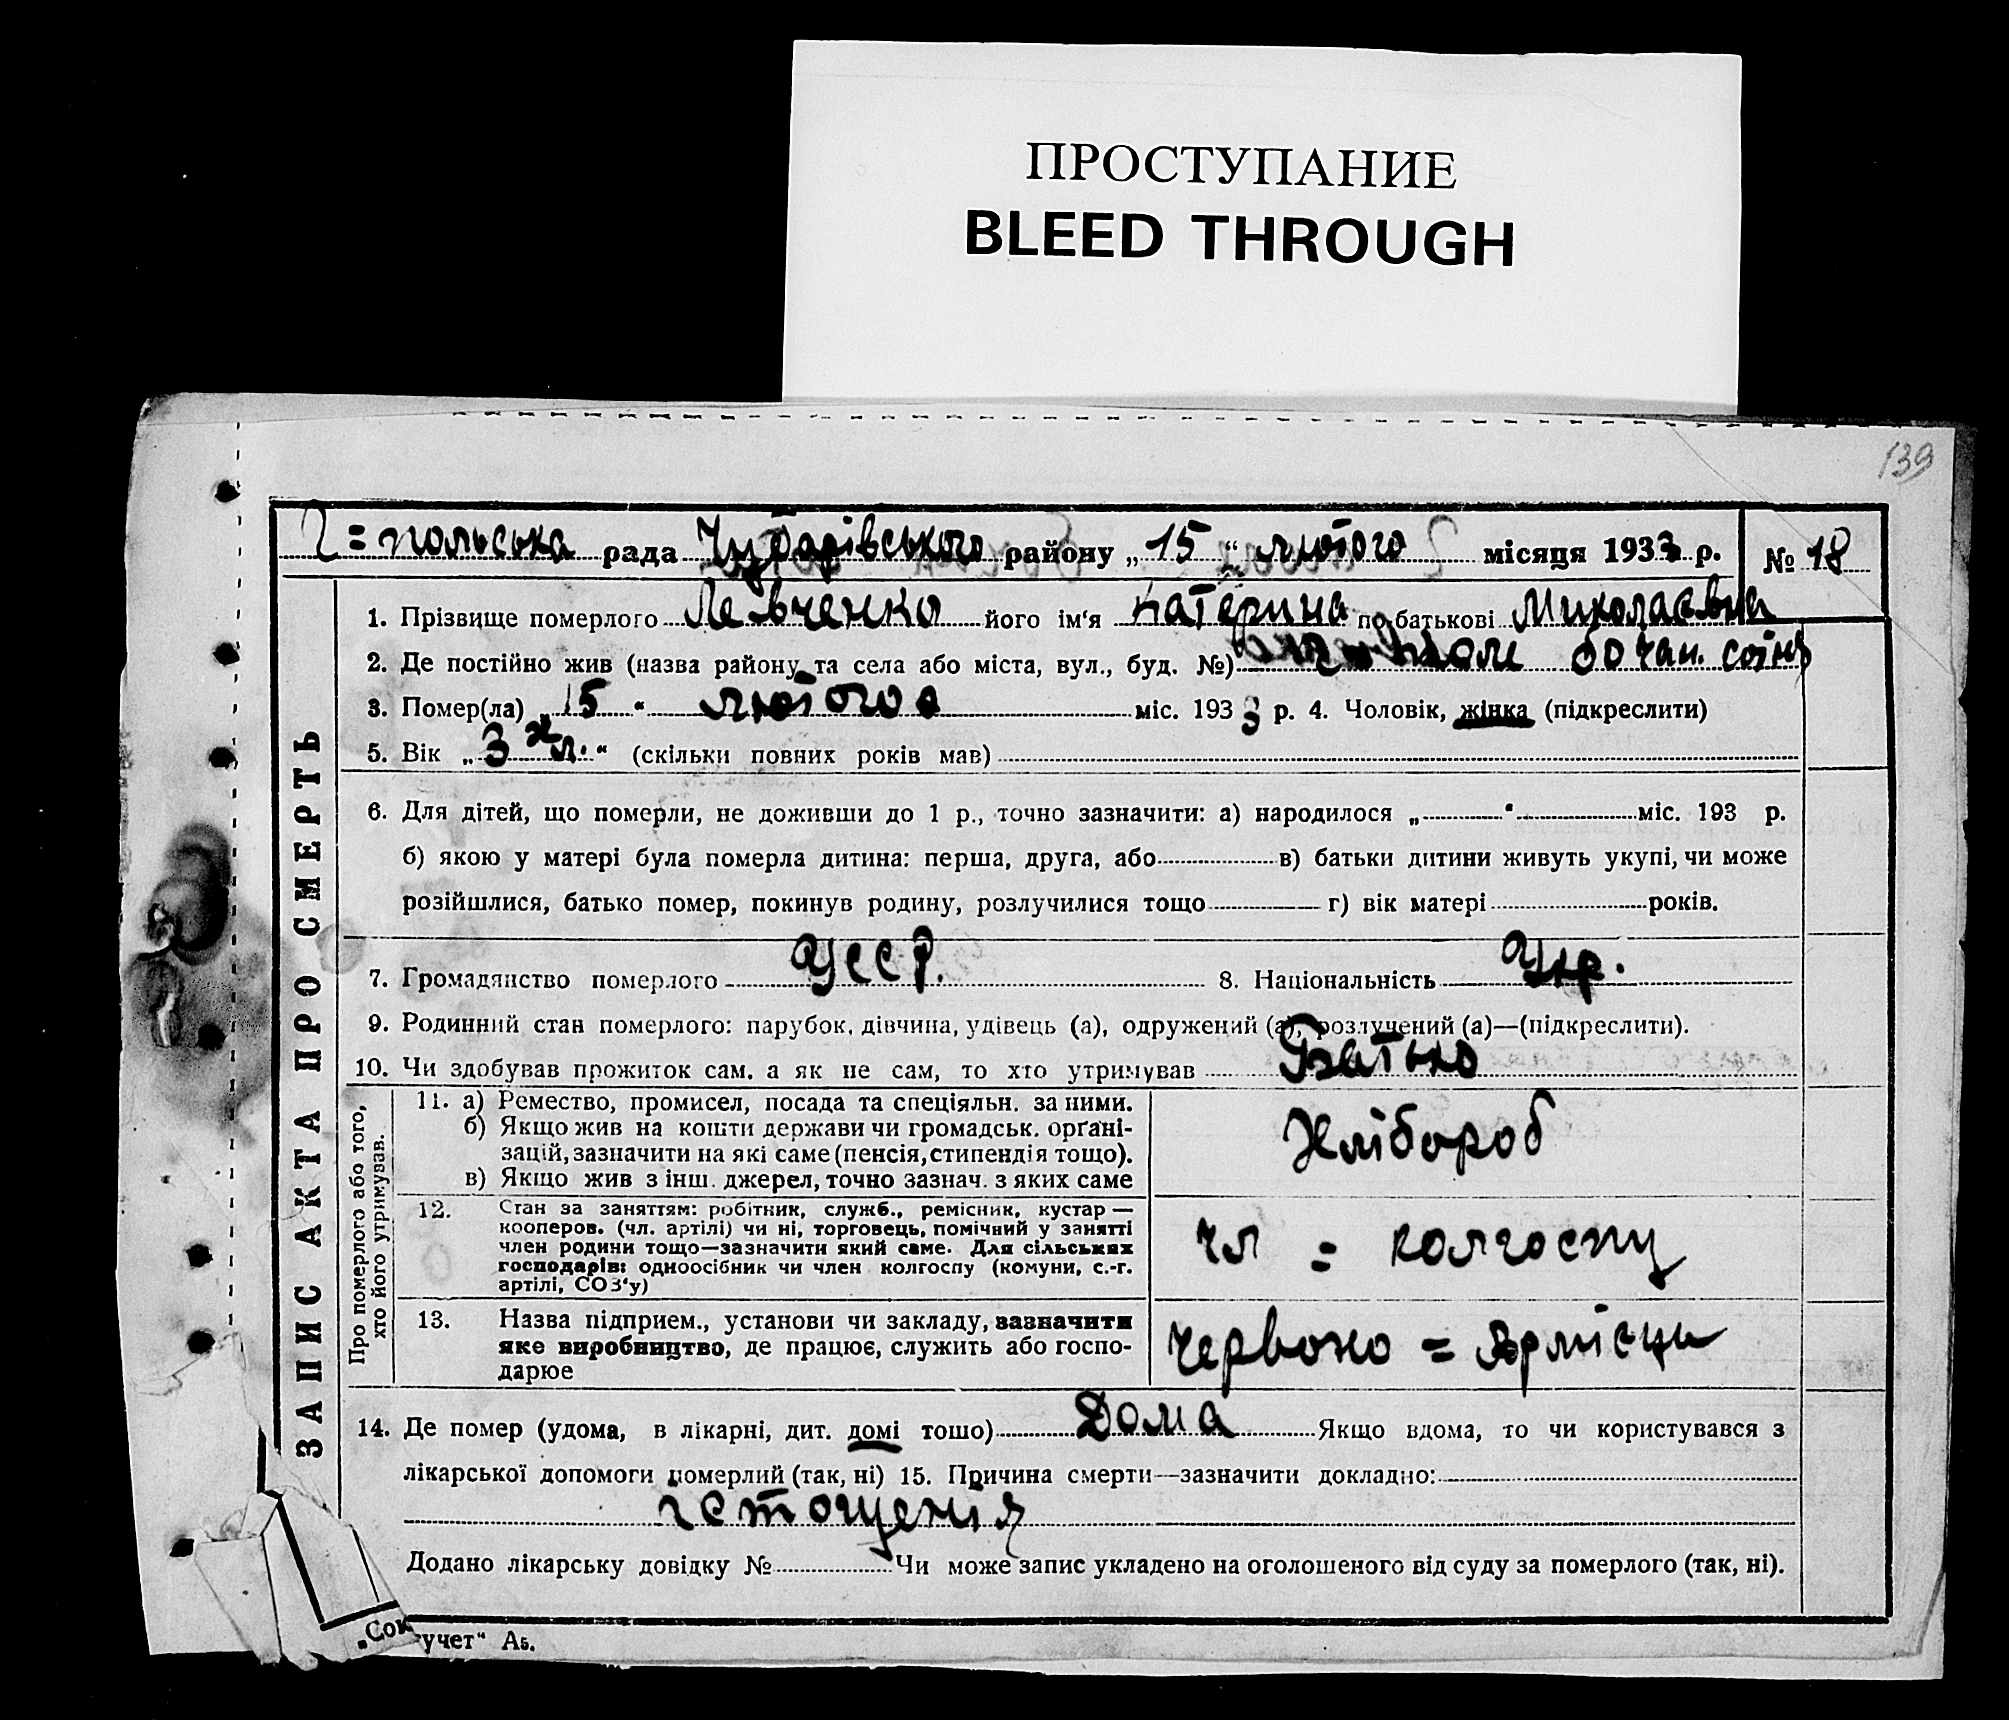 ПРОСТУПАНИЕ
BLEED THROUGH
139
Г=польська рада Чубарівського району „15“ лютого місяця 1933 р. № 18
ЗАПИС АКТА ПРО СМЕРТЬ
1. Прізвище померлого Левченко його ім'я Катерина по батькові Миколаєвна
2. Де постійно жив (назва району та села або міста, вул., буд. №)
3. Помер(ла) „15“ лютого міс. 1933 р. 4. Чоловік, жінка (підкреслити)
5. Вік „3 х л.“ (скільки повних років мав)
6. Для дітей, що померли, не доживши до 1 р., точно зазначити: а) народилося „ “ міс. 193 р.
б) якою у матері була померла дитина: перша, друга, або в) батьки дитини живуть укупі, чи може
розійшлися, батько помер, покинув родину, розлучилися тощо г) вік матері років.
7. Громадянство померлого УССР. 8. Національність Укр.
9. Родинний стан померлого: парубок, дівчина, удівець (а), одружений (а), розлучений (а)—(підкреслити).
10. Чи здобував прожиток сам, а як не сам, то хто утримував Батько
Про померлого або того,
хто його утримував.
11. а) Ремество, промисел, посада та спеціяльн. за ними.
б) Якщо жив на кошти держави чи громадськ. орґані-
зацій, зазначити на які саме (пенсія, стипендія тощо).
в) Якщо жив з інш. джерел, точно зазнач. з яких саме
Хлібороб
12. Стан за заняттям: робітник, служб., ремісник, кустар —
кооперов. (чл. артілі) чи ні, торговець, помічний у занятті
член родини тощо—зазначити який саме. Для сільських
господарів: одноосібник чи член колгоспу (комуни, с.-г.
артілі, СОЗ'у)
чл = колгоспу
13. Назва підприєм., установи чи закладу, зазначити
яке виробництво, де працює, служить або госпо-
дарює
Червоно = Армієци
14. Де помер (удома, в лікарні, дит. домі тощо) Дома Якщо вдома, то чи користувався з
лікарської допомоги померлий (так, ні) 15. Причина смерти—зазначити докладно:
істощенія
Додано лікарську довідку № Чи може запис укладено на оголошеного від суду за померлого (так, ні).
„Сою учет“ А5.